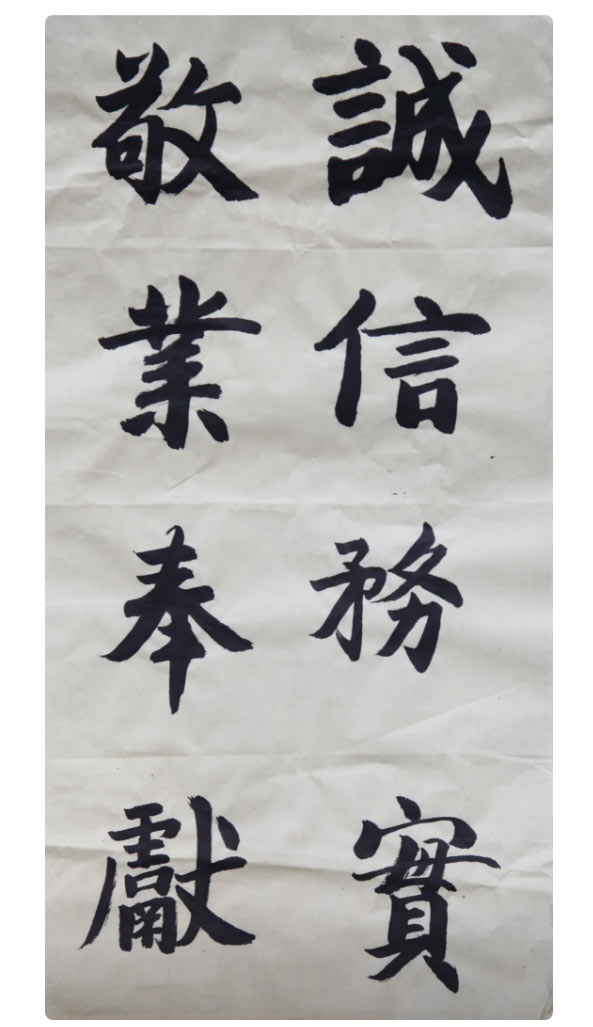 誠信務實
敬業奉獻